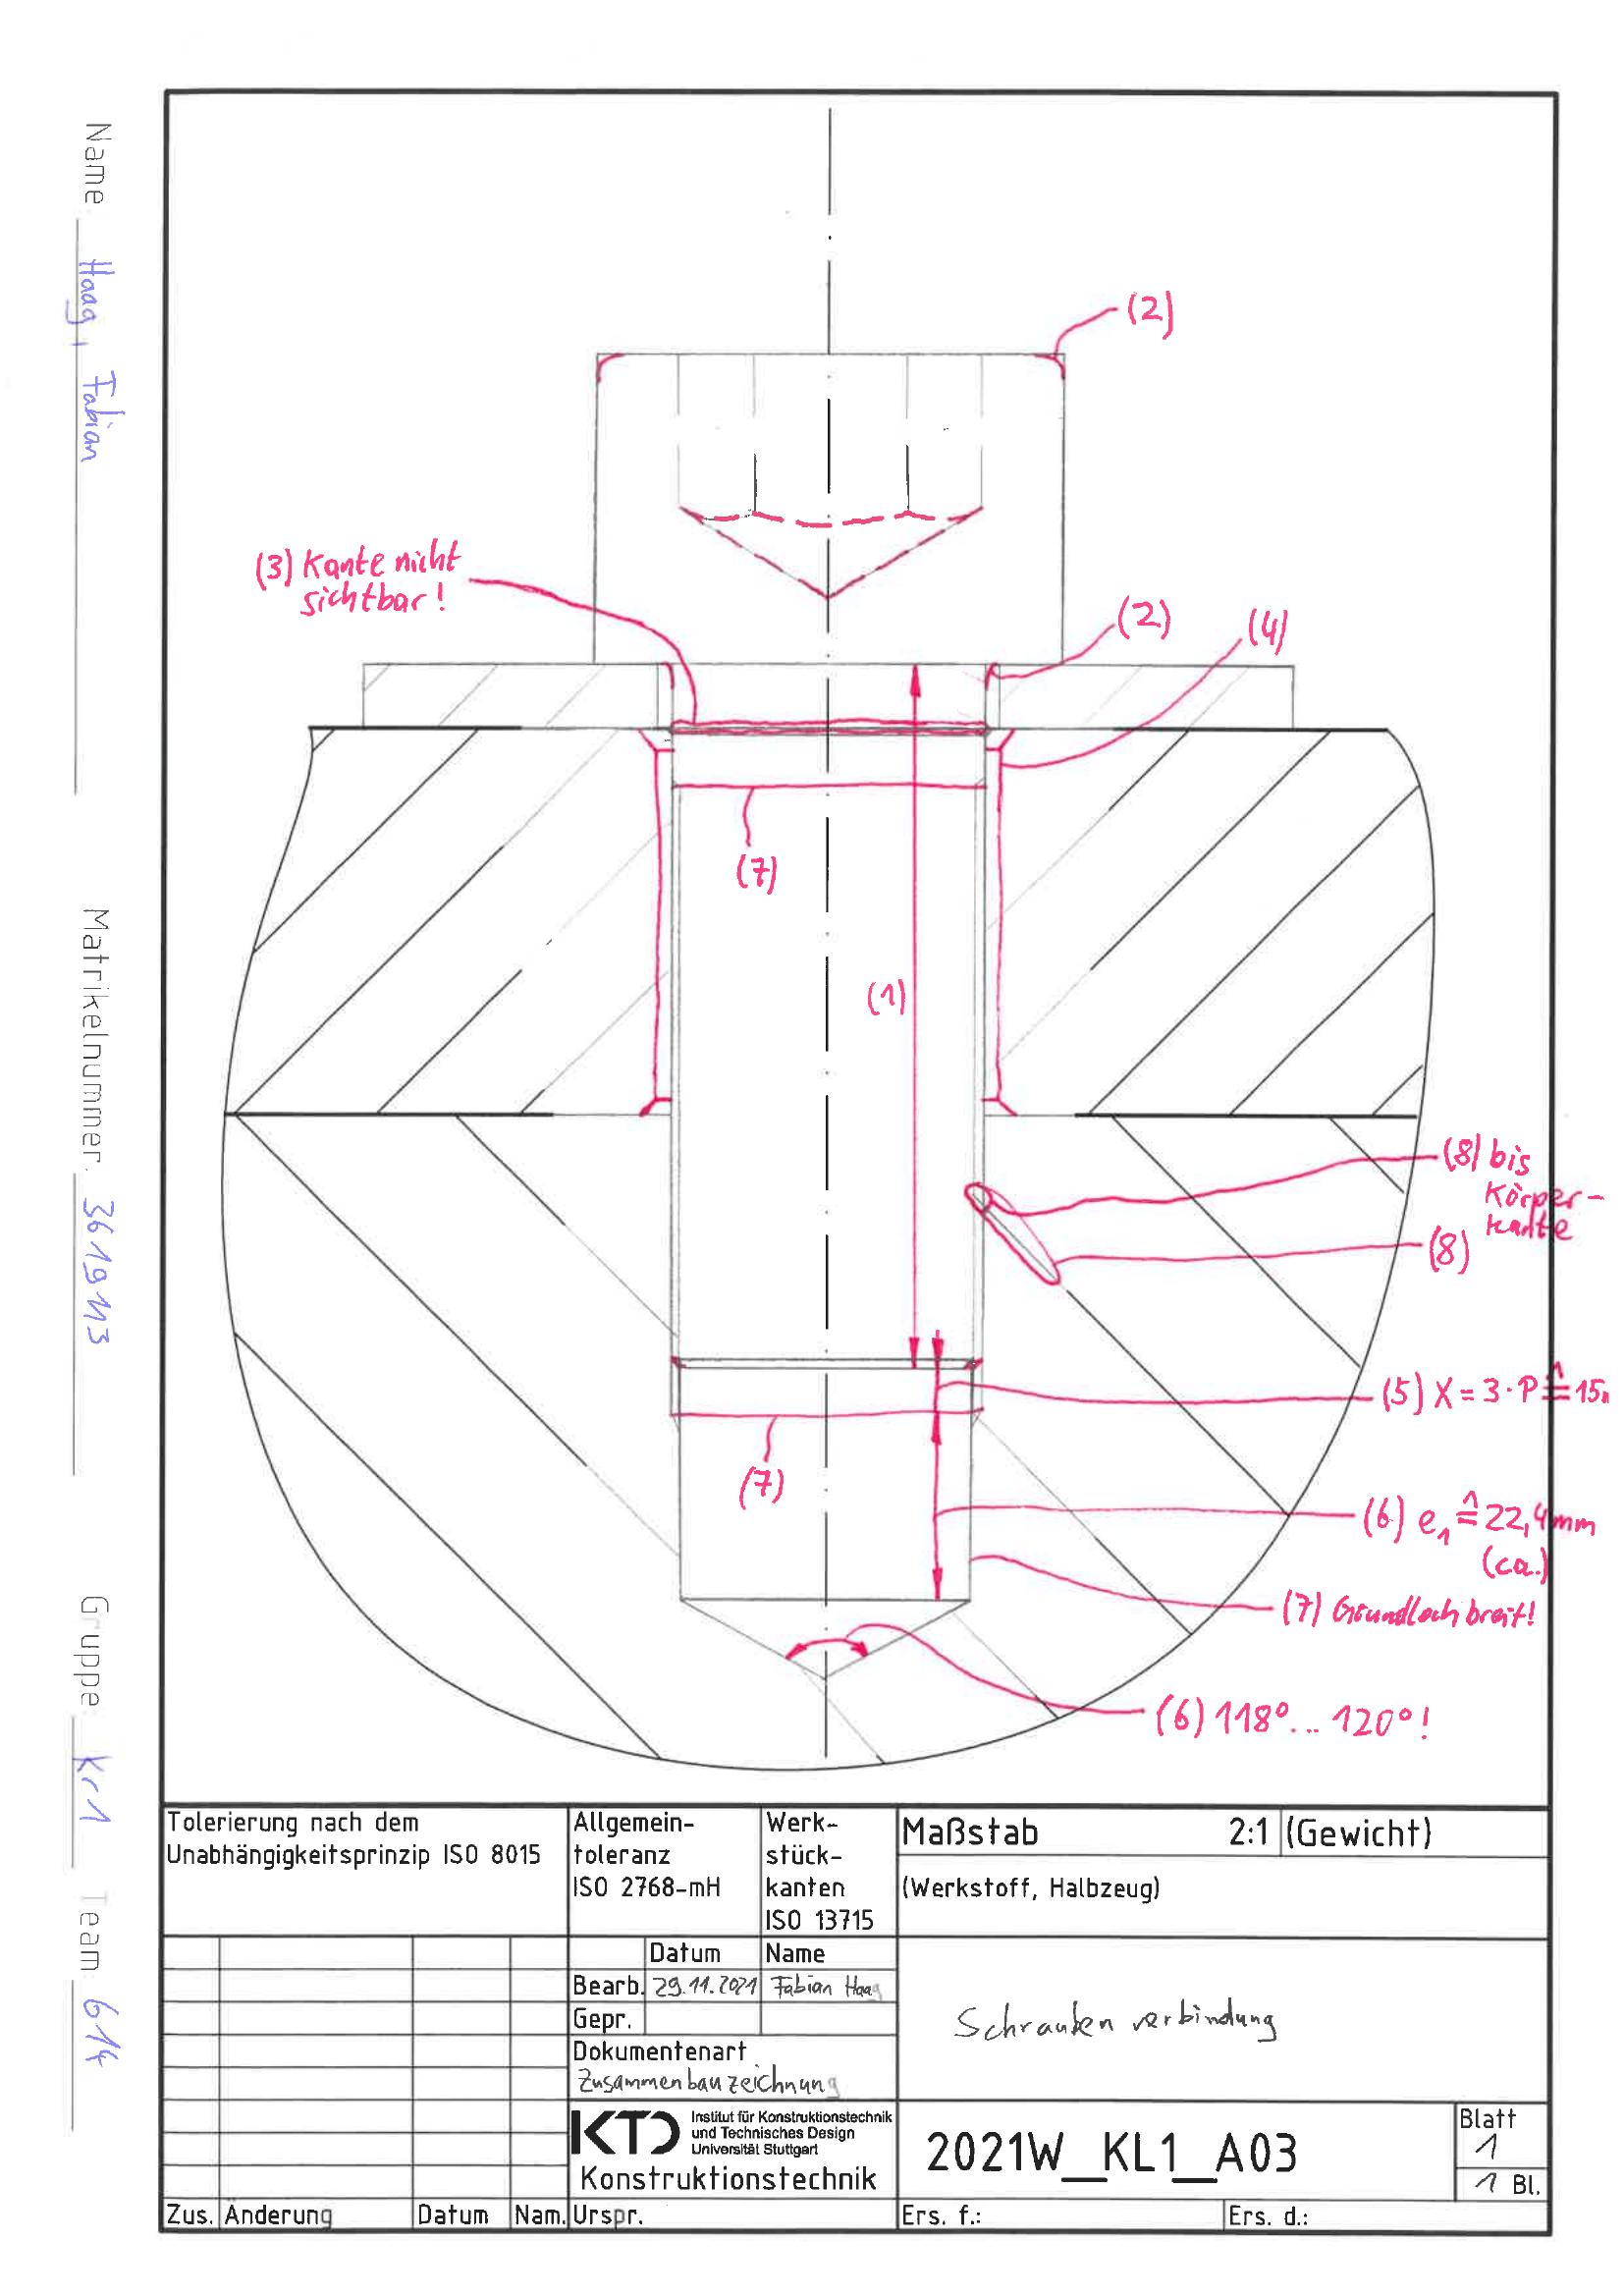 Name: Haag, Fabian
Matrikelnummer: 3619113
Gruppe: Kr1 Team 614
(2)
(3) Kante nicht
sichtbar!
(2)
(4)
(7)
(1)
(8) bis
Körper-
kante
(8)
(5) X = 3·P ≙ 15
(7)
(6) e₁ ≙ 22,4mm
(ca.)
(7) Grundloch breit!
(6) 118°... 120°!
Tolerierung nach dem
Unabhängigkeitsprinzip ISO 8015
Allgemein-
toleranz
ISO 2768-mH
Werk-
stück-
kanten
ISO 13715
Maßstab 2:1 (Gewicht)
(Werkstoff, Halbzeug)
Datum Name
Bearb. 29.11.2021 Fabian Haag
Gepr.
Dokumentenart
Zusammenbauzeichnung
Schraubenverbindung
KTD Institut für Konstruktionstechnik
und Technisches Design
Universität Stuttgart
Konstruktionstechnik
2021W_KL1_A03
Blatt
1
1 Bl.
Zus. Änderung Datum Nam. Urspr. Ers. f.: Ers. d.: